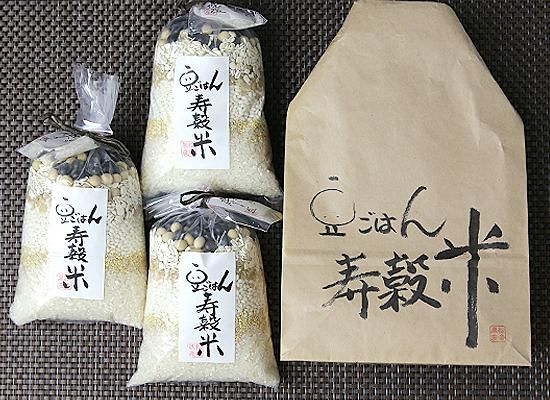 豆ごはん
寿穀米
豆ごはん
寿穀米
豆ごはん
寿穀米
豆ごはん
寿穀米